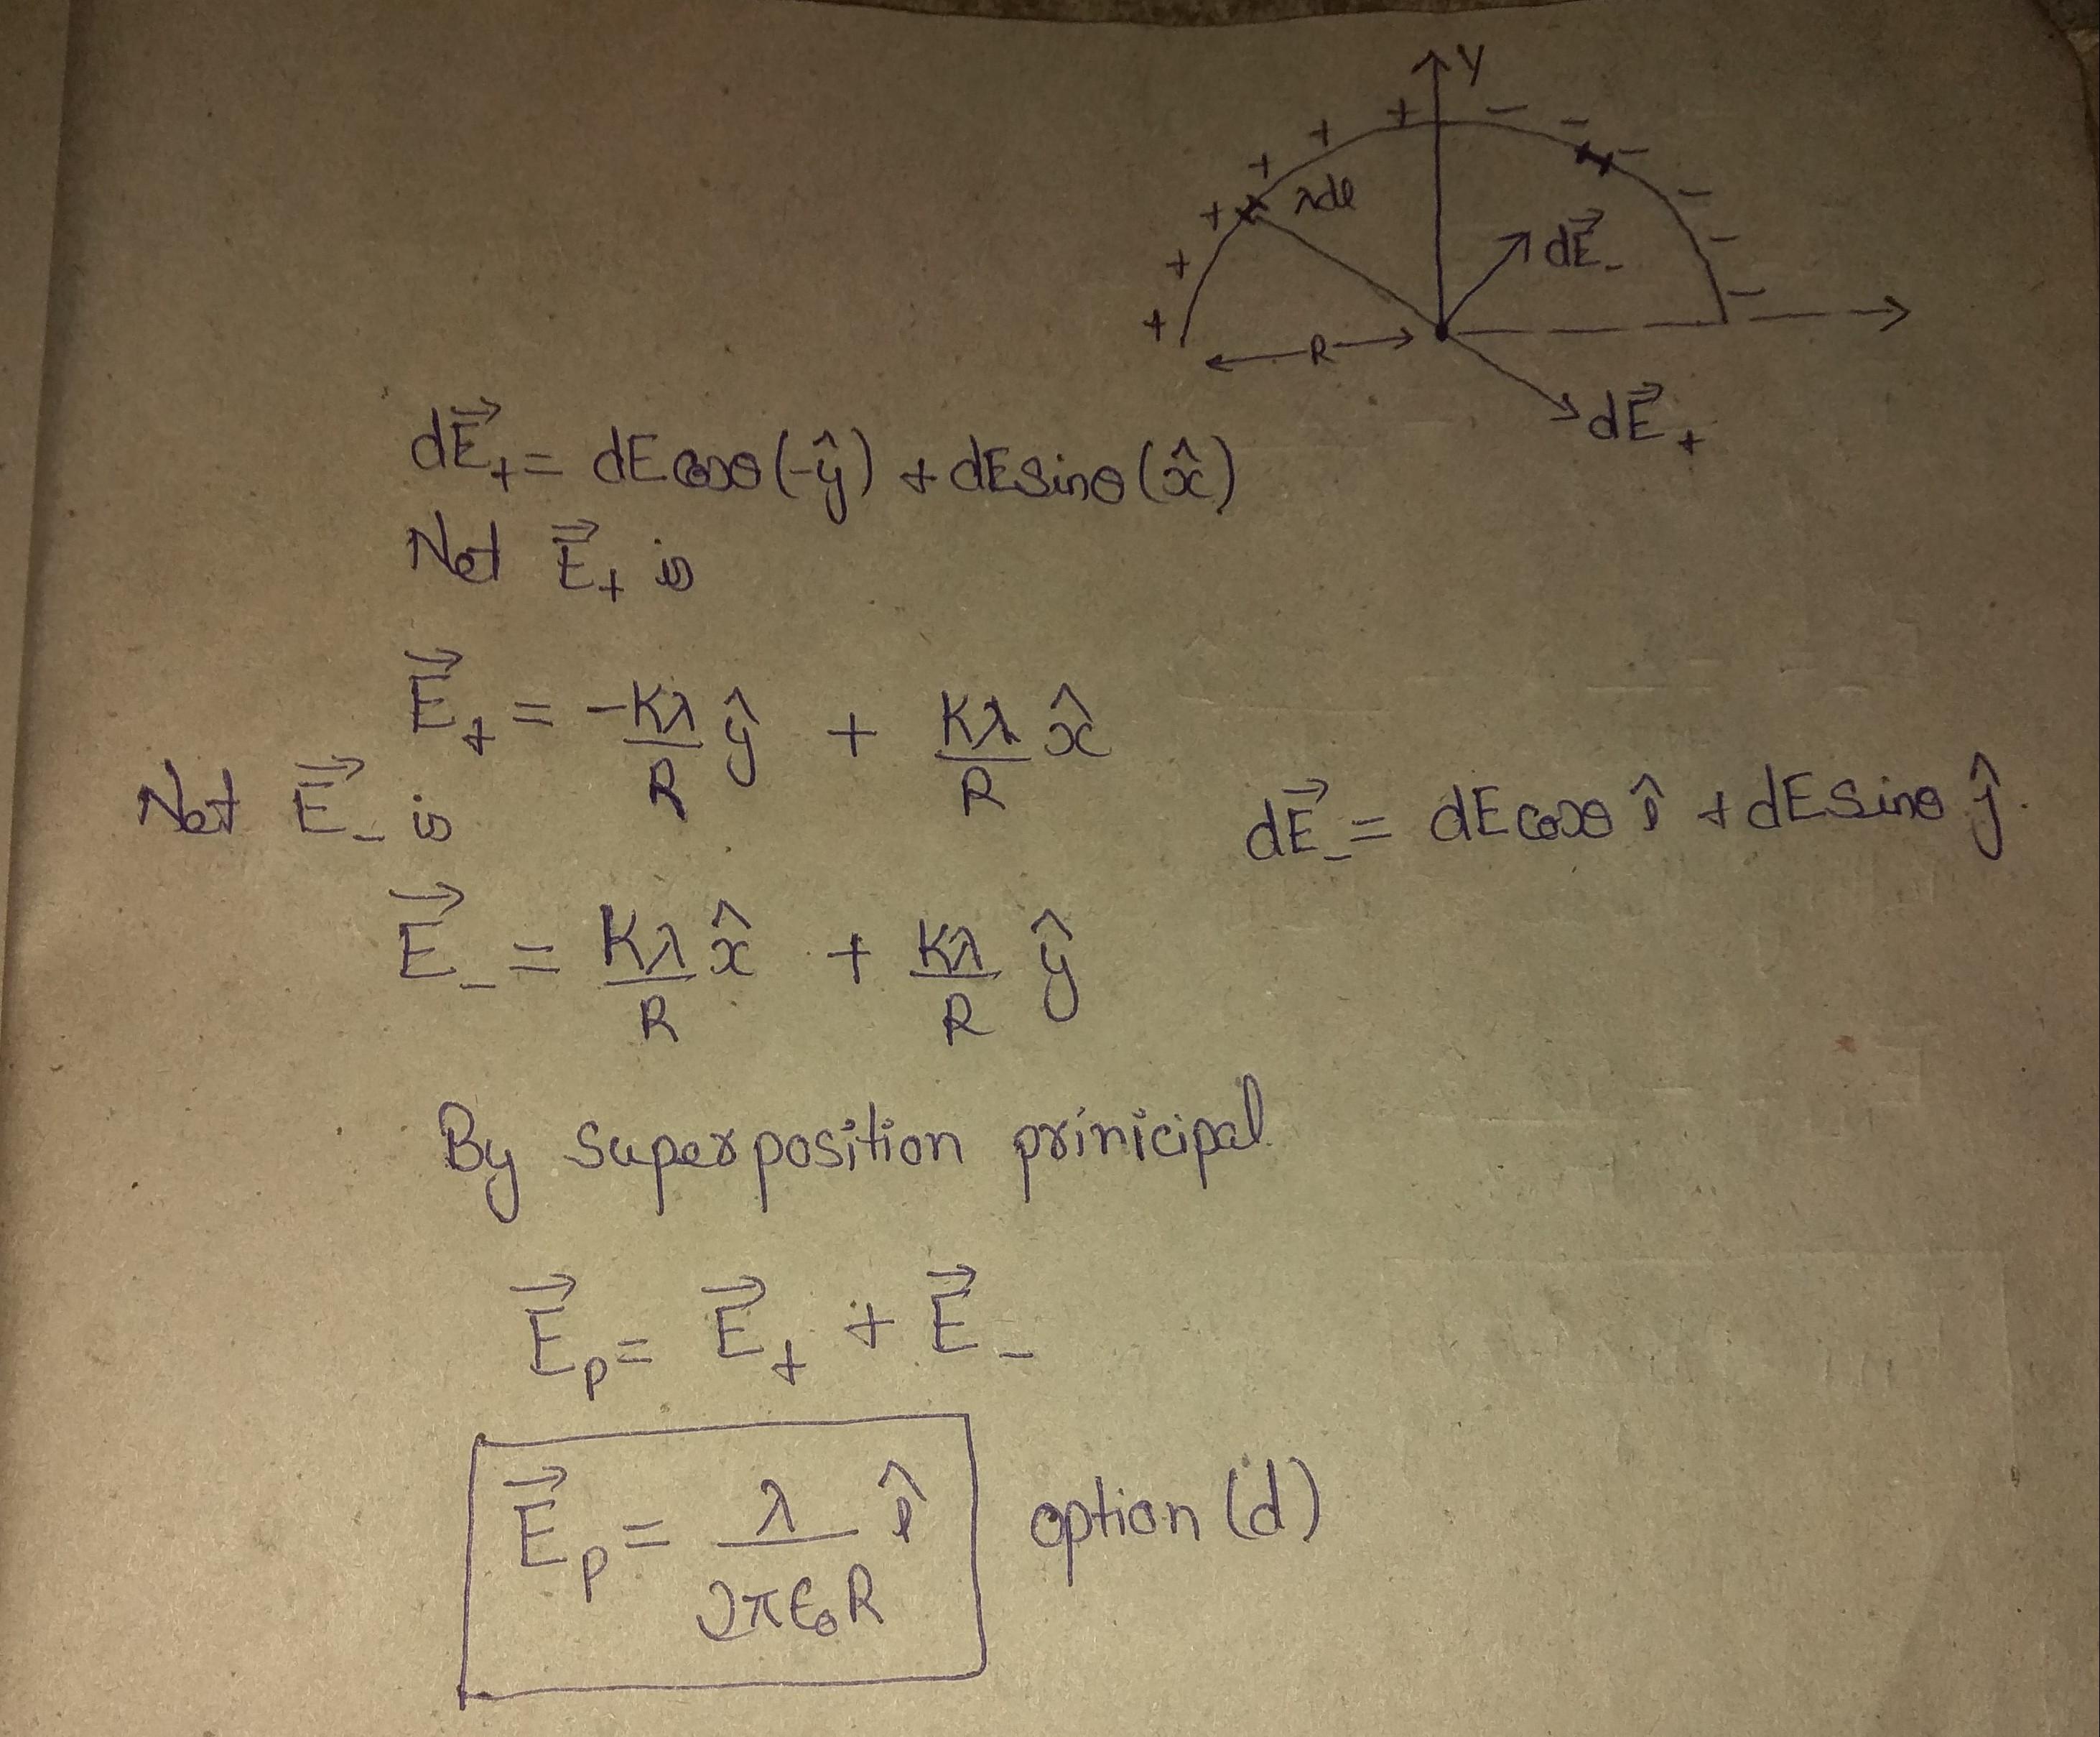 Y
+ + + + + + + - - - - - -
λdl
dE⃗₋
R
dE⃗₊
dE⃗₊ = dE cosθ (-ŷ) + dE sinθ (x̂)
Net E⃗₊ is
E⃗₊ = -Kλ/R ŷ + Kλ/R x̂
Net E⃗₋ is
dE⃗₋ = dE cosθ î + dE sinθ ĵ.
E⃗₋ = Kλ/R x̂ + Kλ/R ŷ
By superposition prinicipal
E⃗p = E⃗₊ + E⃗₋
E⃗p = λ/2πε₀R î option (d)